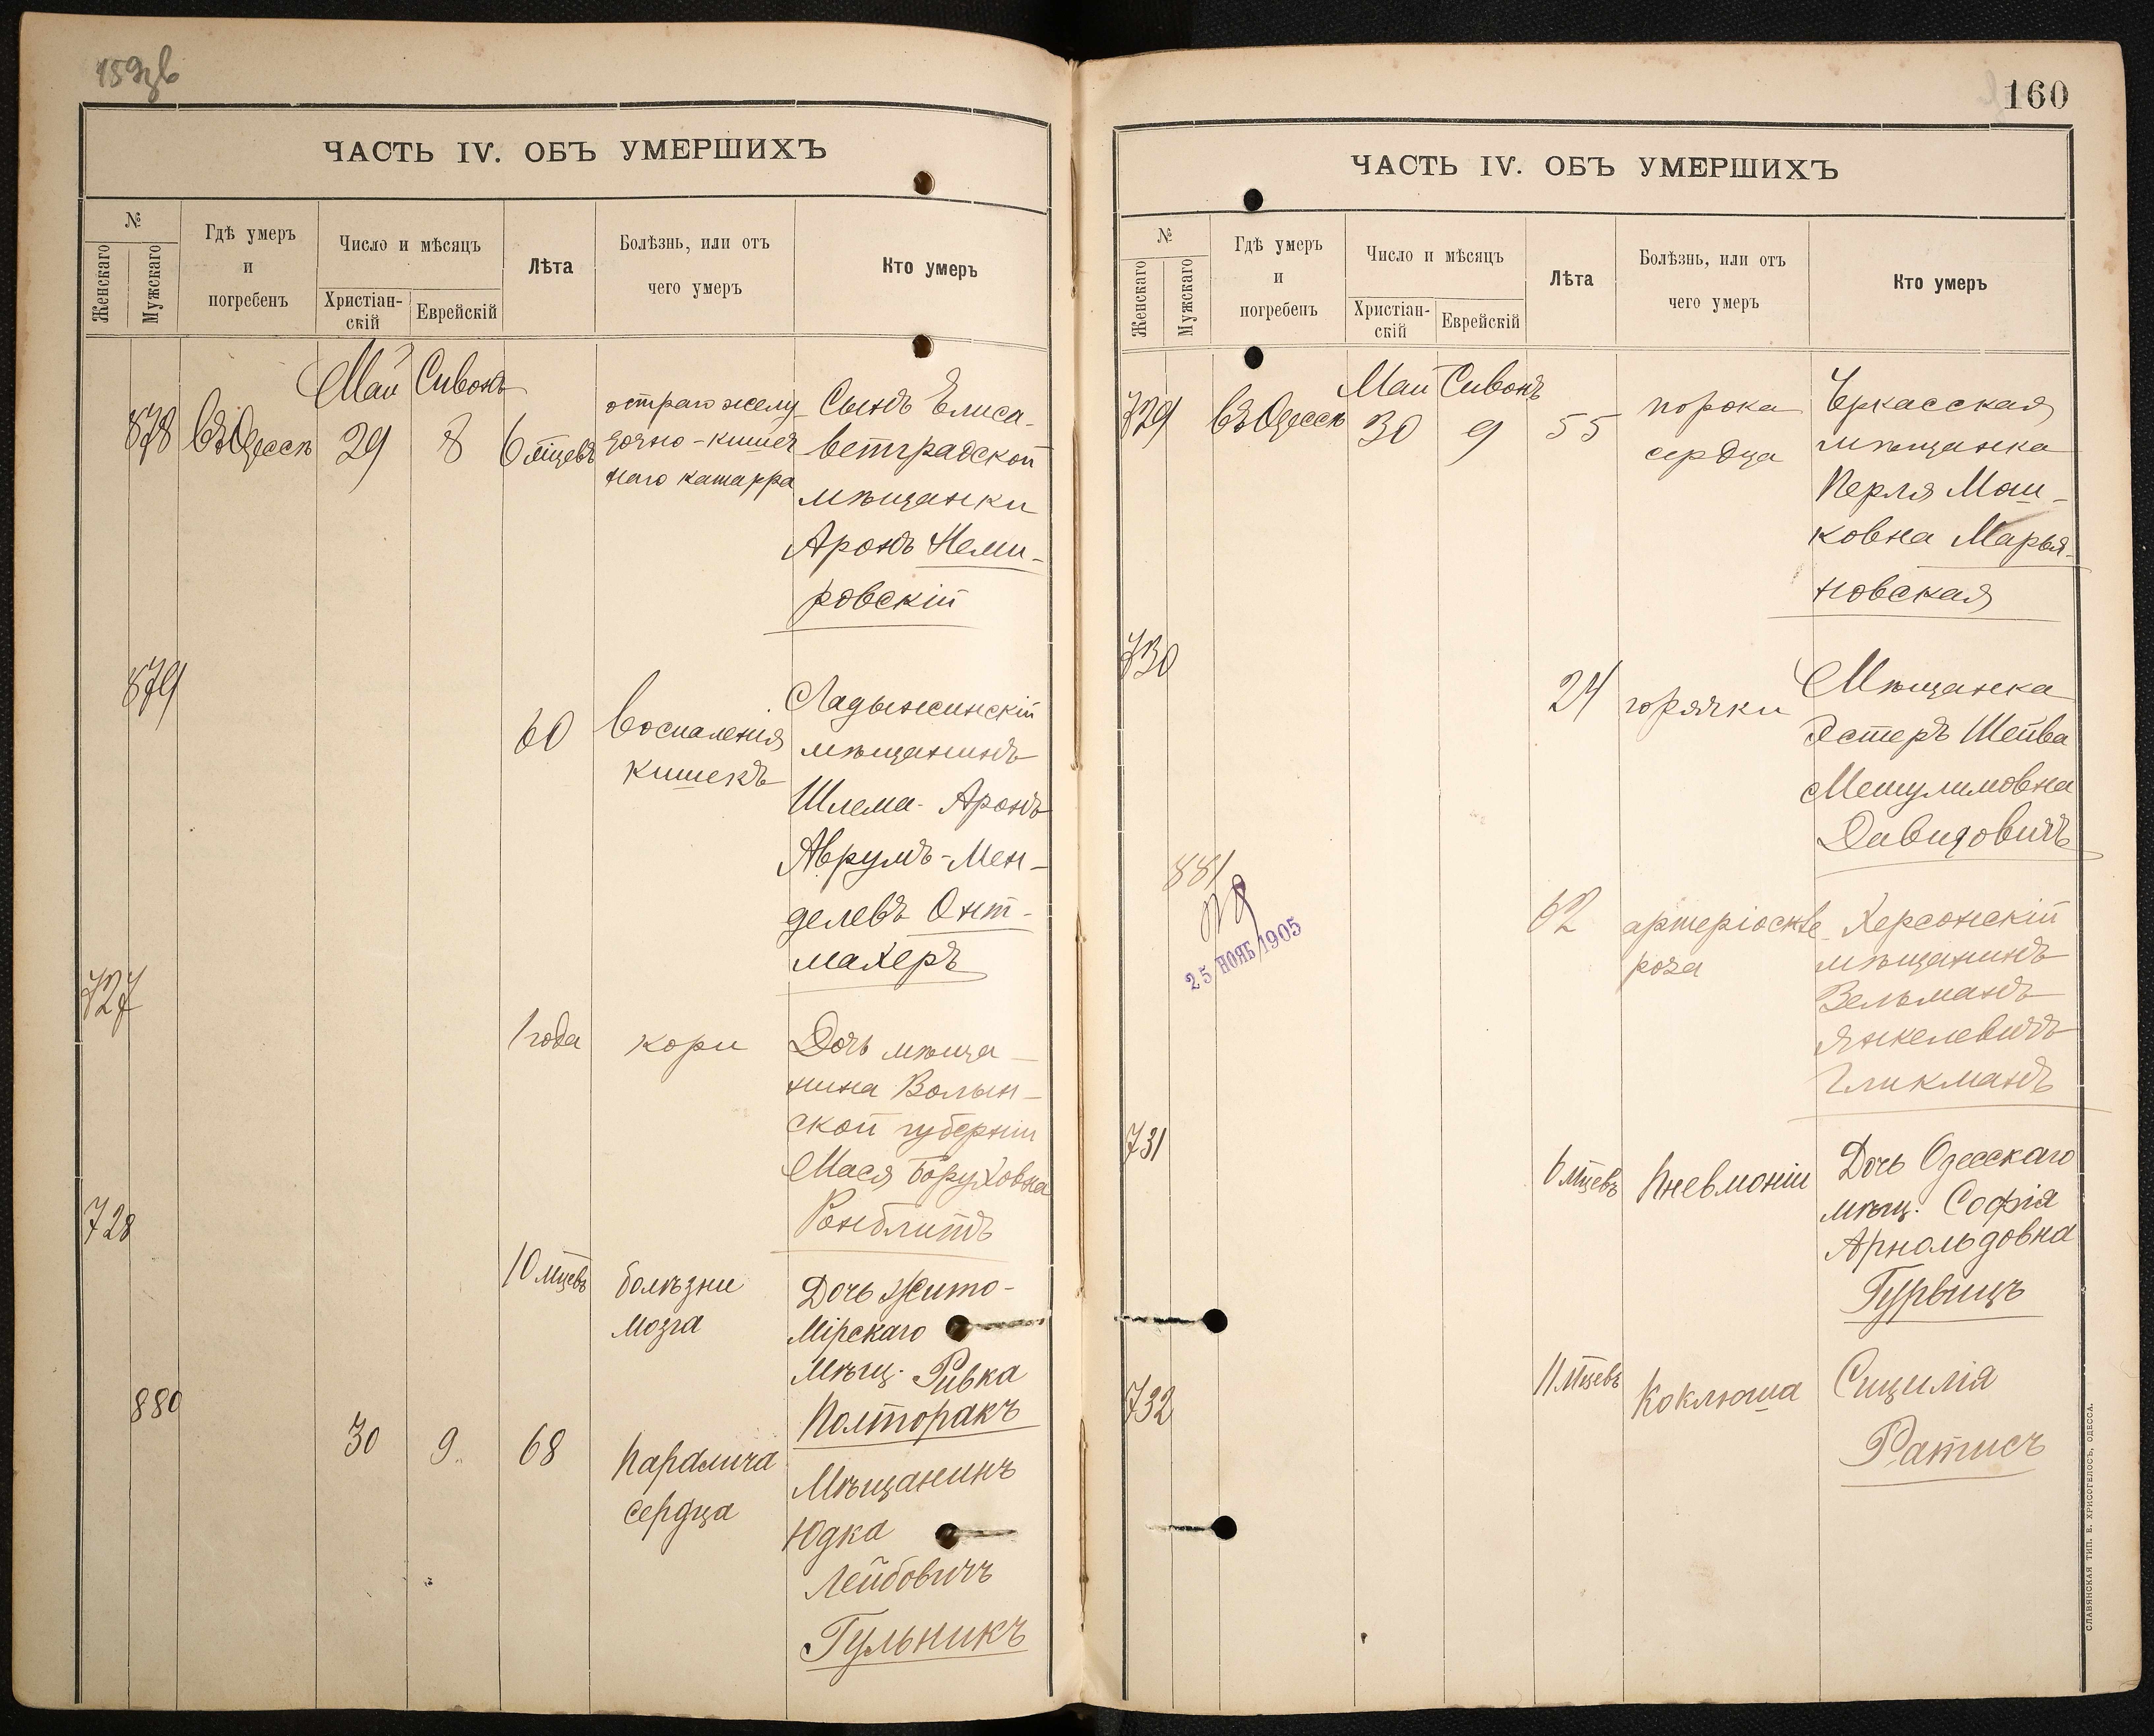 ЧАСТЬ IV. ОБЪ УМЕРШИХЪ
№
Женскаго
Мужскаго
Гдѣ умеръ
и
погребенъ
Число и мѣсяцъ
Христіан-
скій
Еврейскій
Лѣта
Болѣзнь, или отъ
чего умеръ
Кто умеръ
Май Сивонъ
878 въ Одессѣ 29 8 6 мцевъ
остраго желу-
дочно-кишеч
наго катарра
Сынъ Елиса-
ветградской
мѣщанки
Аронъ Неми-
ровскій
879
60
Воспаленія
кишекъ
Ладыжинскій
мѣщанинъ
Шлема-Аронъ
Аврумъ-Мен-
делевъ Онт-
махеръ
727
1 года
кори
Дочь мѣща-
нина Волын-
ской губерніи
Мася Боруховна
Ронблитъ
728
10 мцевъ
болѣзни
мозга
Дочь Жито-
мірскаго
мѣщ. Ривка
Полторакъ
880
30 9 68
паралича
сердца
Мѣщанинъ
Юдка
Лейбовичъ
Гульникъ
160
ЧАСТЬ IV. ОБЪ УМЕРШИХЪ
№
Женскаго
Мужскаго
Гдѣ умеръ
и
погребенъ
Число и мѣсяцъ
Христіан-
скій
Еврейскій
Лѣта
Болѣзнь, или отъ
чего умеръ
Кто умеръ
Май Сивонъ
729 въ Одессѣ 30 9 55
порока
сердца
Черкасская
мѣщанка
Перля Мош-
ковна Марья-
новская
730
24
горячки
Мѣщанка
Эстеръ Шейва
Мешулимовна
Давидовичъ
881
25 НОЯБ 1905
62
артеріоскле-
роза
Херсонскій
мѣщанинъ
Вельманъ
Янкелевичъ
Гликманъ
731
6 мцевъ
Пневмоніи
Дочь Одесскаго
мѣщ. Софія
Арнольдовна
Гурвицъ
732
11 мцевъ
Коклюша
Сицилія
Ратисъ
СЛАВЯНСКАЯ ТИП. Е. ХРИСОГЕЛОСЪ, ОДЕССА.